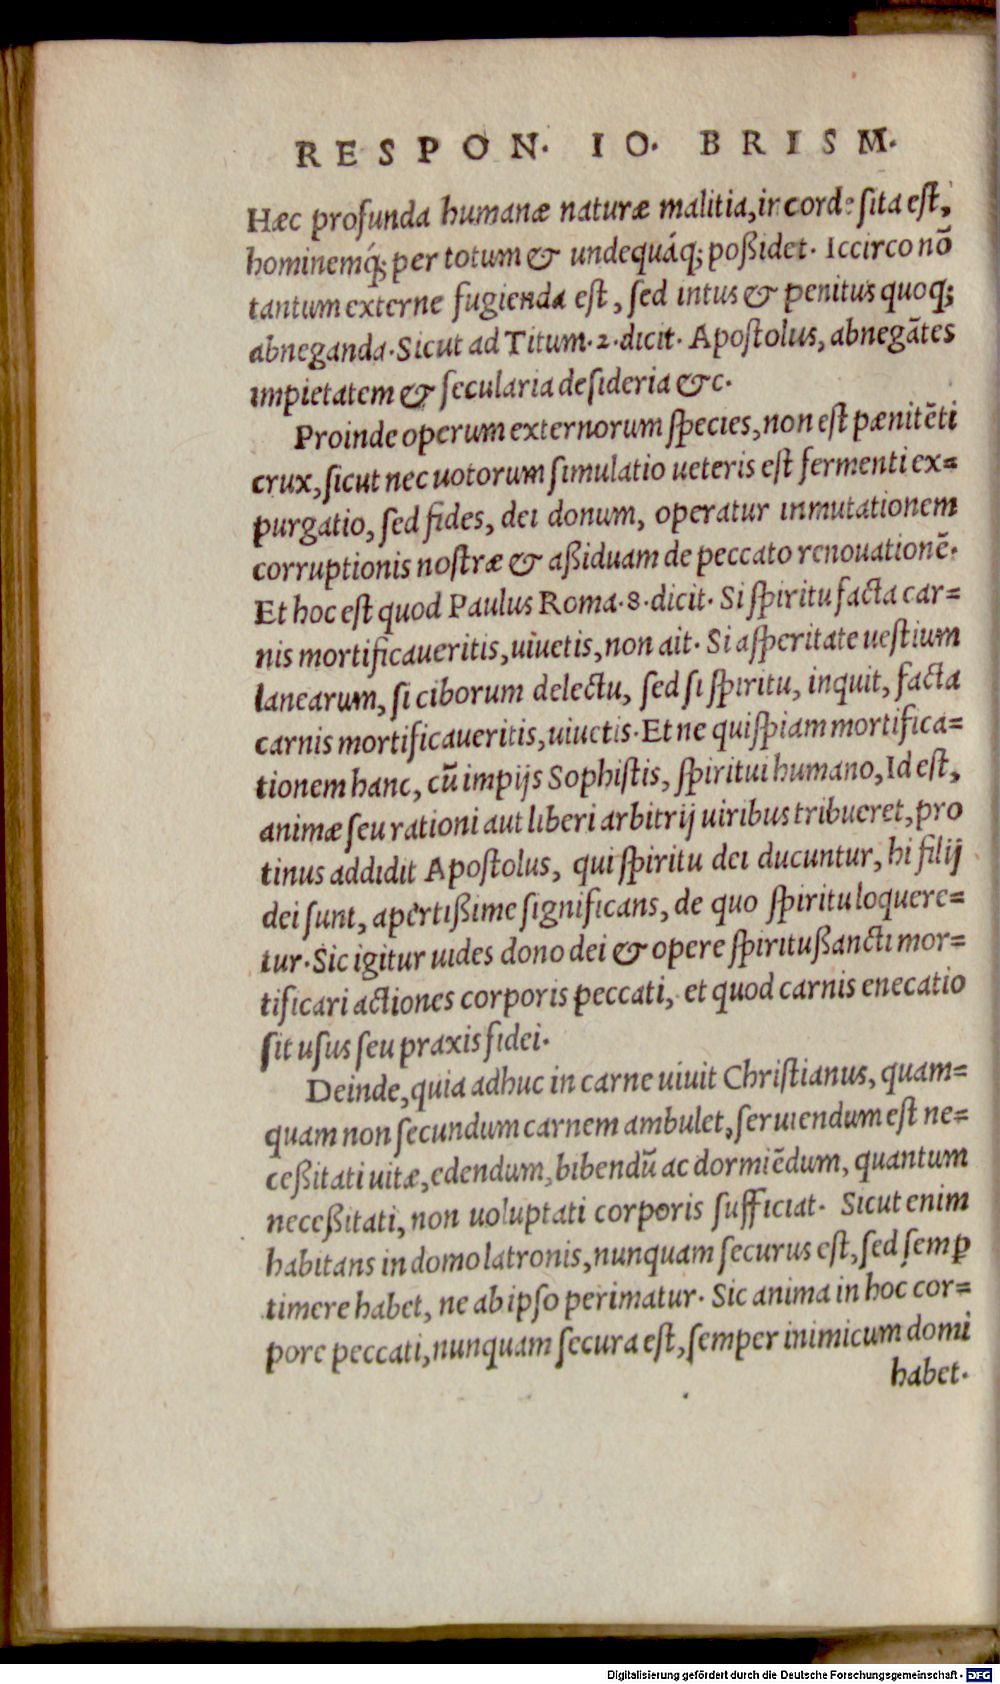 RESPON. IO. BRISM.
Hæc profunda humanæ naturæ malitia, in corde sita est,
hominemq́; per totum & undequáq; poßidet. Iccirco nō
tantum externe fugienda est, sed intus & penitus quoq;
abneganda. Sicut ad Titum. 2. dicit. Apostolus, abnegātes
impietatem & secularia desideria &c.
Proinde operum externorum species, non est pænitēti
crux, sicut nec uotorum simulatio ueteris est fermenti ex=
purgatio, sed fides, dei donum, operatur inmutationem
corruptionis nostræ & aßiduam de peccato renouationē.
Et hoc est quod Paulus Roma. 8. dicit. Si spiritu facta car=
nis mortificaueritis, uiuetis, non ait. Si asperitate uestium
lanearum, si ciborum delectu, sed si spiritu, inquit, facta
carnis mortificaueritis, uiuetis. Et ne quispiam mortifica=
tionem hanc, cū impijs Sophistis, spiritui humano, Id est,
animæ seu rationi aut liberi arbitrij uiribus tribueret, pro
tinus addidit Apostolus, qui spiritu dei ducuntur, hi filij
dei sunt, apertißime significans, de quo spiritu loquere=
tur. Sic igitur uides dono dei & opere spiritußancti mor=
tificari actiones corporis peccati, et quod carnis enecatio
sit usus seu praxis fidei.
Deinde, quia adhuc in carne uiuit Christianus, quam=
quam non secundum carnem ambulet, seruiendum est ne=
ceßitati uitæ, edendum, bibendū ac dormiēdum, quantum
neceßitati, non uoluptati corporis sufficiat. Sicut enim
habitans in domo latronis, nunquam securus est, sed semꝑ
timere habet, ne ab ipso perimatur. Sic anima in hoc cor=
pore peccati, nunquam secura est, semper inimicum domi
habet.
Digitalisierung gefördert durch die Deutsche Forschungsgemeinschaft - DFG